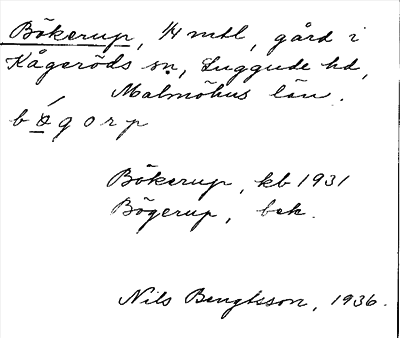 Bökerup, 1/4 mtl, gård i
Kågeröds sn, Luggude hd,
Malmöhus län.
bǿgorp
Bökerup, kb 1931
Bögerup, bek.
Nils Bengtsson, 1936.